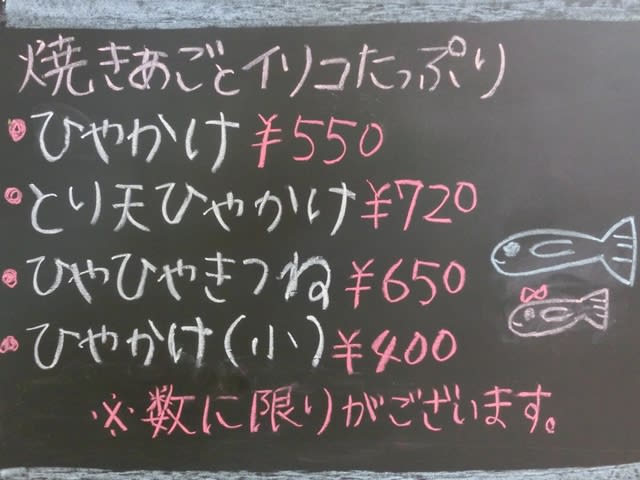 焼きあごとイリコたっぷり
・ひやかけ ¥550
・とり天ひやかけ ¥720
・ひやひやきつね ¥650
・ひやかけ(小) ¥400
※数に限りがございます。